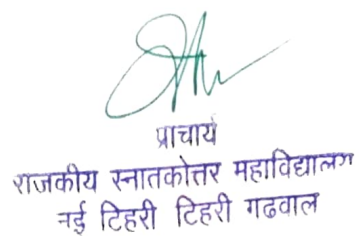 प्राचार्य
राजकीय स्नातकोत्तर महाविद्यालय
नई टिहरी टिहरी गढवाल